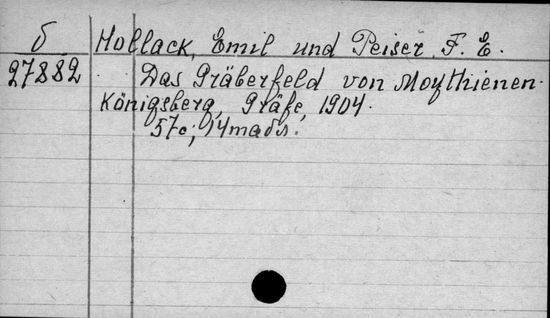 б Hollack, Emil und Peiser, F. E.
27882 Das Gräberfeld von Moythienen.
Königsberg, Gräfe, 1904.
57с; 14табл.